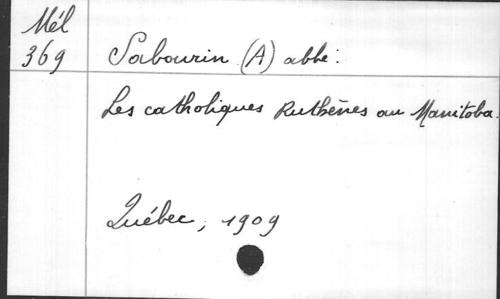 Mél
369
Sabourin (A) abbé.
Les catholiques Ruthènes au Manitoba.
Québec, 1909